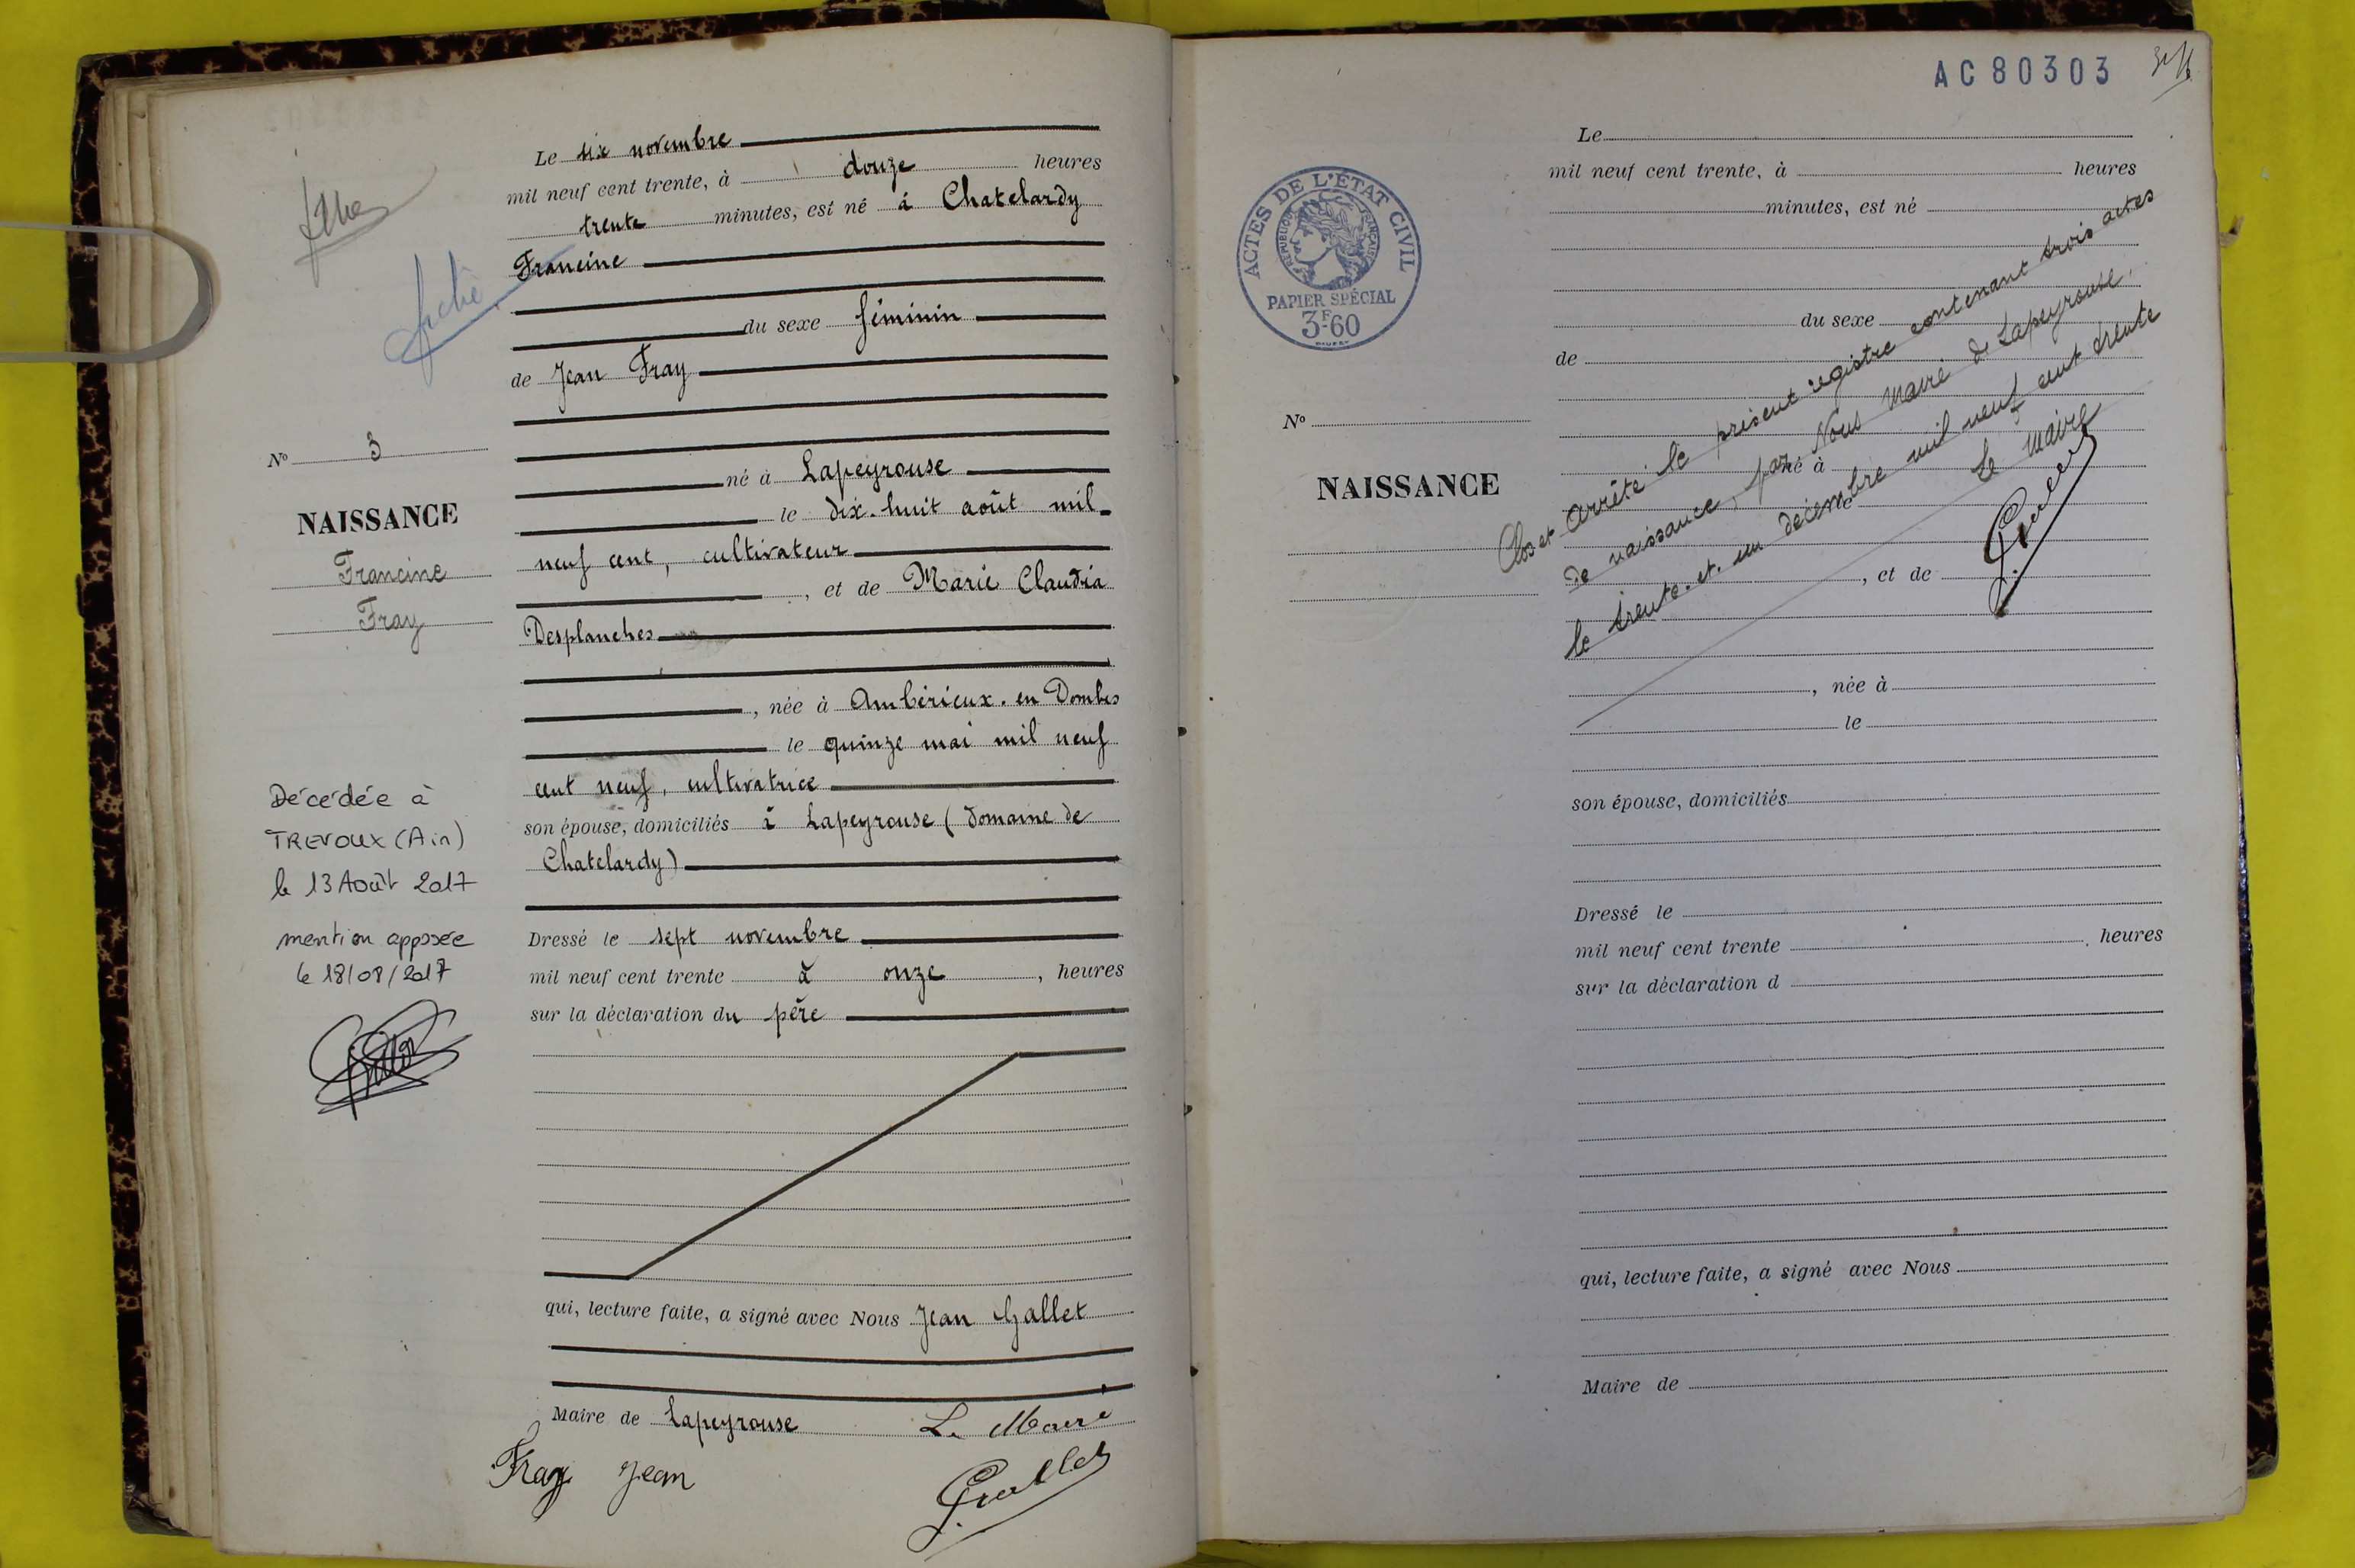 Le six novembre
mil neuf cent trente, à douze heures
trente minutes, est né à Chatelardy
Francine
fiche
du sexe féminin
de Jean Fray
né à Lapeyrouse
le dix-huit août mil
neuf cent, cultivateur
, et de Marie Claudia
Desplanches
, née à Ambérieux-en Dombes
le quinze mai mil neuf
cent neuf, cultivatrice
son épouse, domiciliés à Lapeyrouse (Domaine de
Chatelardy)
Dressé le sept novembre
mil neuf cent trente à onze, heures
sur la déclaration du père
qui, lecture faite, a signé avec Nous Jean Gallet
Maire de Lapeyrouse Le Maire
Fray Jean Gallet
N° 3
NAISSANCE
Francine
Fray
Décédée à
TREVOUX (Ain)
le 13 Août 2017
mention apposée
le 18/08/2017
AC 80303
ACTES DE L'ETAT CIVIL
REPUBLIQUE FRANÇAISE
PAPIER SPÉCIAL
3F60
Le
mil neuf cent trente, à heures
minutes, est né
du sexe
de
N°
NAISSANCE
né à
le
, et de
, née à
le
son épouse, domiciliés
Dressé le
mil neuf cent trente heures
sur la déclaration d
qui, lecture faite, a signé avec Nous
Maire de
Clos et arrêté le présent registre contenant trois actes
de naissance, par Nous Maire de Lapeyrouse,
le trente-et-un décembre mil neuf cent trente
Le Maire
Gallet